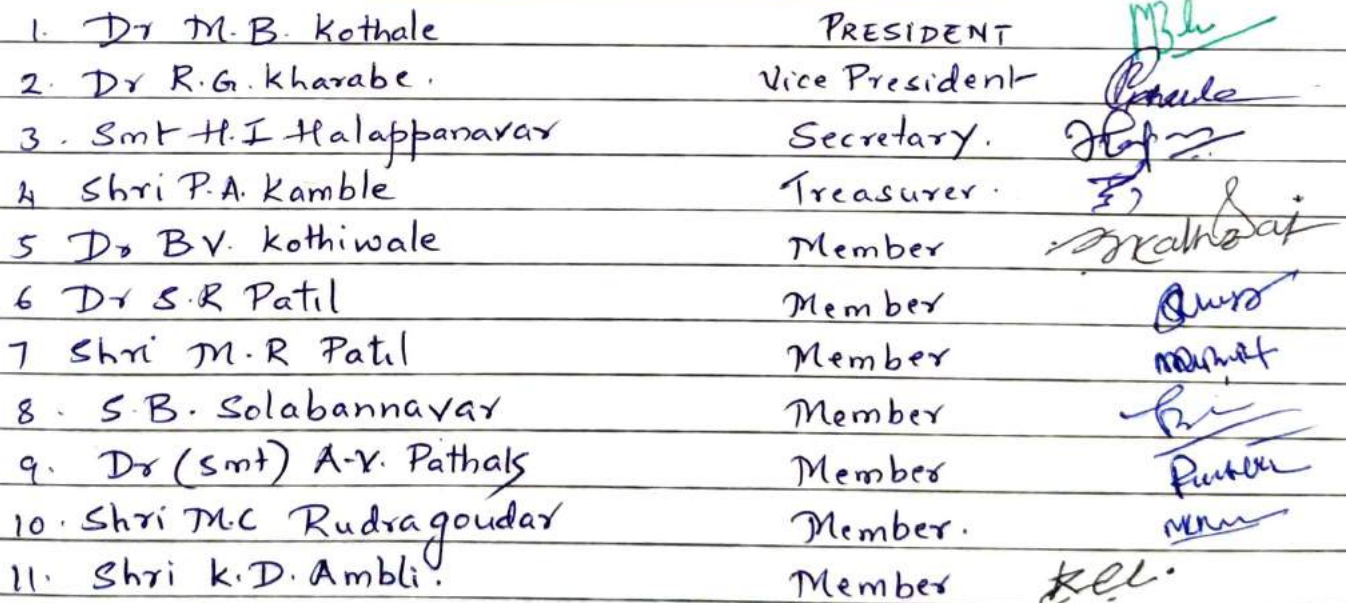 1. Dr M.B. Kothale PRESIDENT
2. Dr R.G. Kharabe. Vice President
3. Smt H.I Halappanavar Secretary.
4 Shri P.A. Kamble Treasurer.
5 Dr B.V. Kothiwale Member
6 Dr S.R Patil Member
7 Shri M.R Patil Member
8. S.B. Solabannavar Member
9. Dr (Smt) A.V. Pathak Member
10. Shri M.C Rudragoudar Member.
11. Shri K.D. Ambli. Member